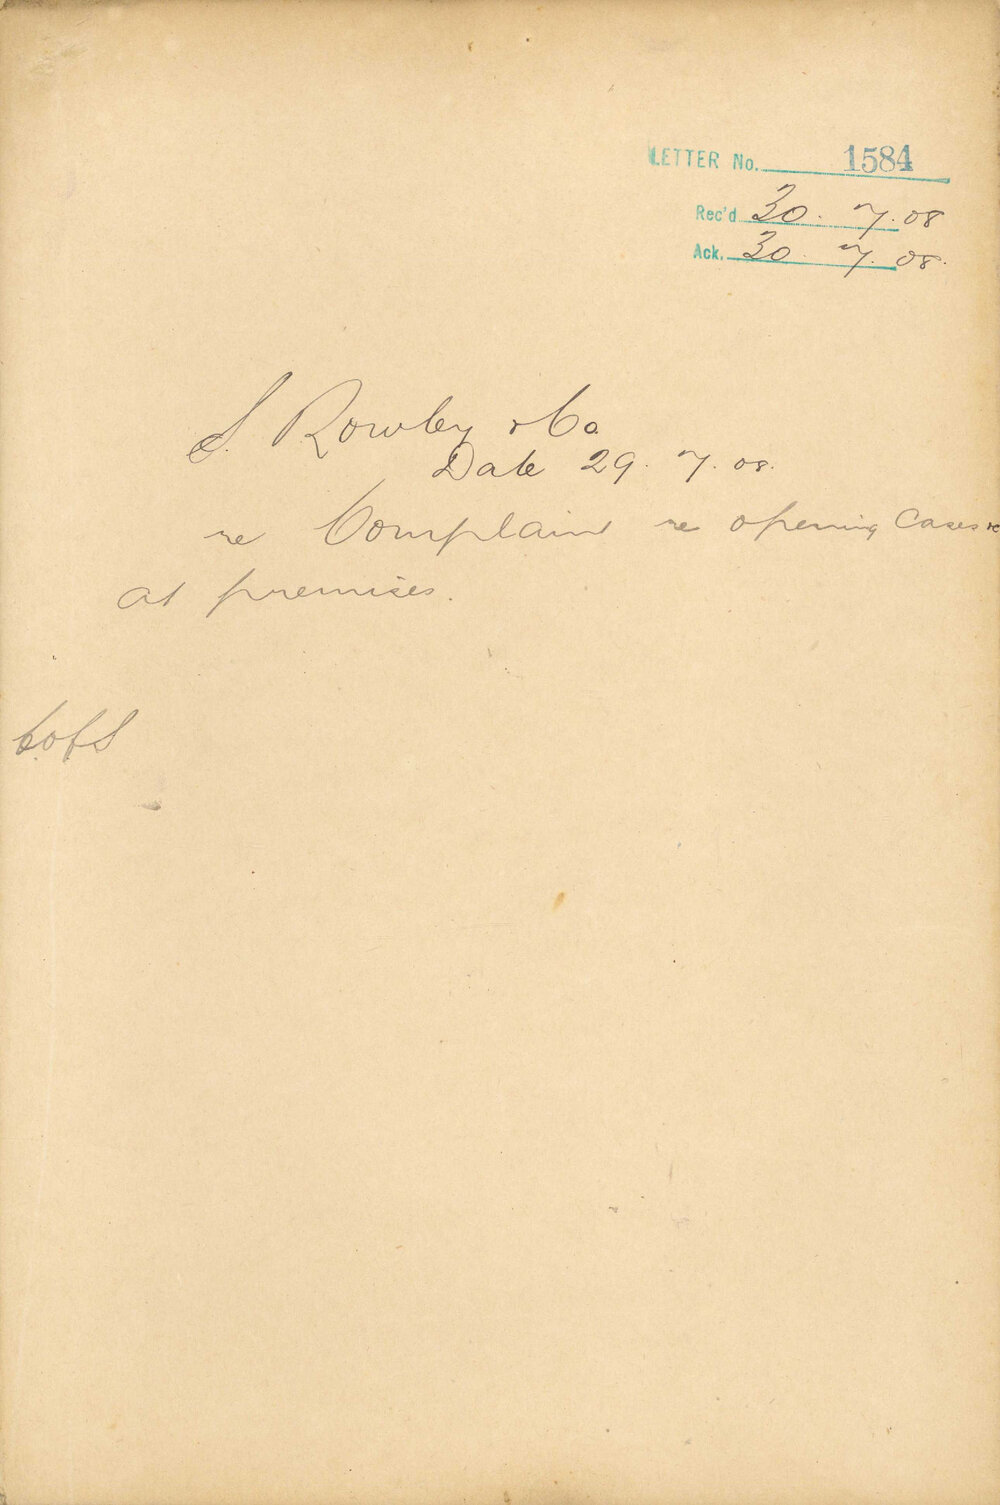 LETTER No. 1584
Rec'd 30. 7. 08
Ack. 30. 7. 08.
S. Rowley & Co
Date 29. 7. 08.
re Complaint re opening Cases &c
at premises.
C of S